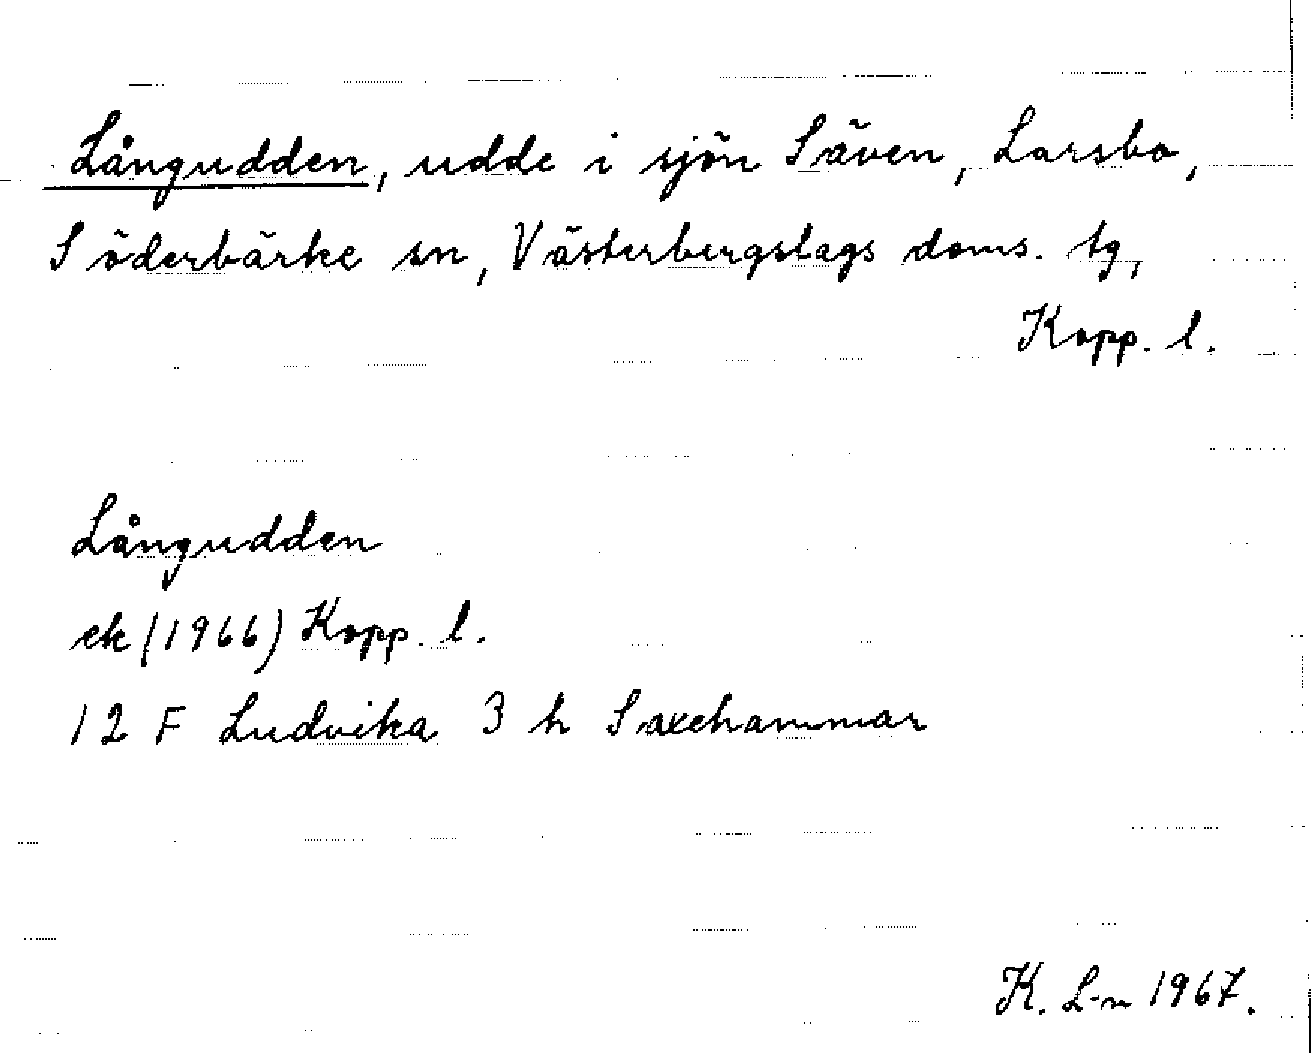 Långudden, udde i sjön Säven, Larsbo,
Söderbärke sn, Västerbergslags doms. tg,
Kopp. l.
Långudden
ek (1966) Kopp. l.
12 F Ludvika 3 h Saxehammar
K. L-n 1967.